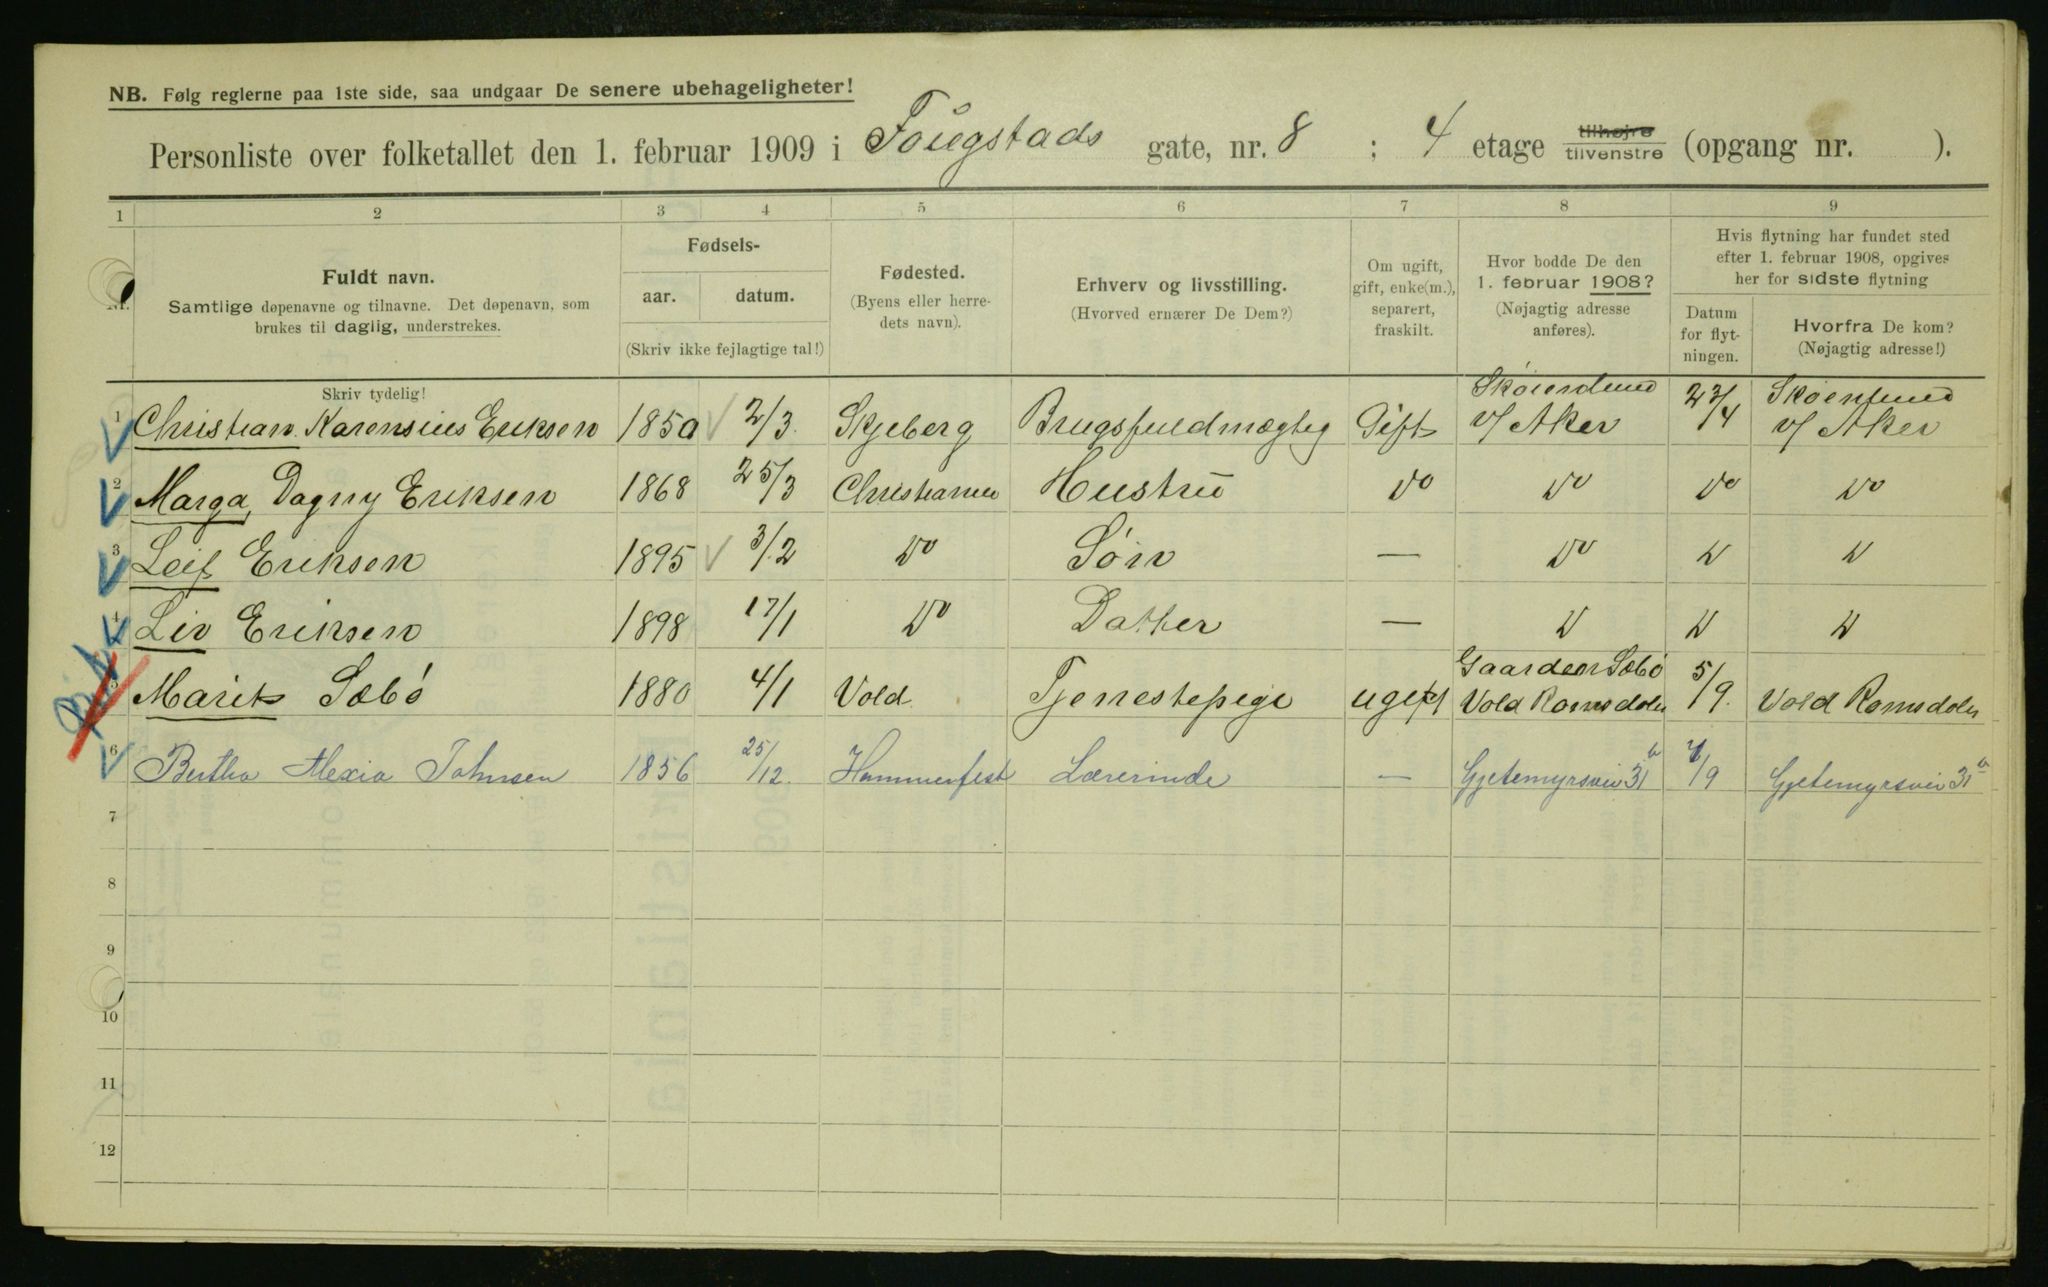 NB. Følg reglerne paa 1ste side, saa undgaar De senere ubehageligheter!
Personliste over folketallet den 1. februar 1909 i Fougstads gate, nr. 8 ; 4 etage tilhøjre tilvenstre (opgang nr. ).
1 2 3 4 5 6 7 8 9
Nr.
Fuldt navn.
Samtlige døpenavne og tilnavne. Det døpenavn, som
brukes til daglig, understrekes.
Skriv tydelig!
Fødsels-
aar. datum.
(Skriv ikke fejlagtige tal!)
Fødested.
(Byens eller herre-
dets navn).
Erhverv og livsstilling.
(Hvorved ernærer De Dem?)
Om ugift,
gift, enke(m.),
separert,
fraskilt.
Hvor bodde De den
1. februar 1908?
(Nøjagtig adresse
anføres).
Hvis flytning har fundet sted
efter 1. februar 1908, opgives
her for sidste flytning
Datum
for flyt-
ningen.
Hvorfra De kom?
(Nøjagtig adresse!)
1 Christian Karensius Eriksen 1850 2/3 Skjeberg Brugsfuldmægtig Gift Skøienlund v/ Aker 23/4 Skøienlund v/ Aker
2 Marga, Dagny Eriksen 1868 25/3 Christiania Hustru Do Do Do Do
3 Leif Eriksen 1895 3/2 Do Søn — Do D D
4 Liv Eriksen 1898 17/1 Do Datter — D D D
5 Marit Sæbø 1880 4/1 Vold Tjenestepige ugift Gaarden Sæbø Vold Romsdalen 5/9. Vold Romsdalen
6 Bertha Alexia Johnsen 1856 25/12. Hammerfest Lærerinde — Gjetemyrsvei 31b /9 Gjetemyrsvei 31b
7
8
9
10
11
12